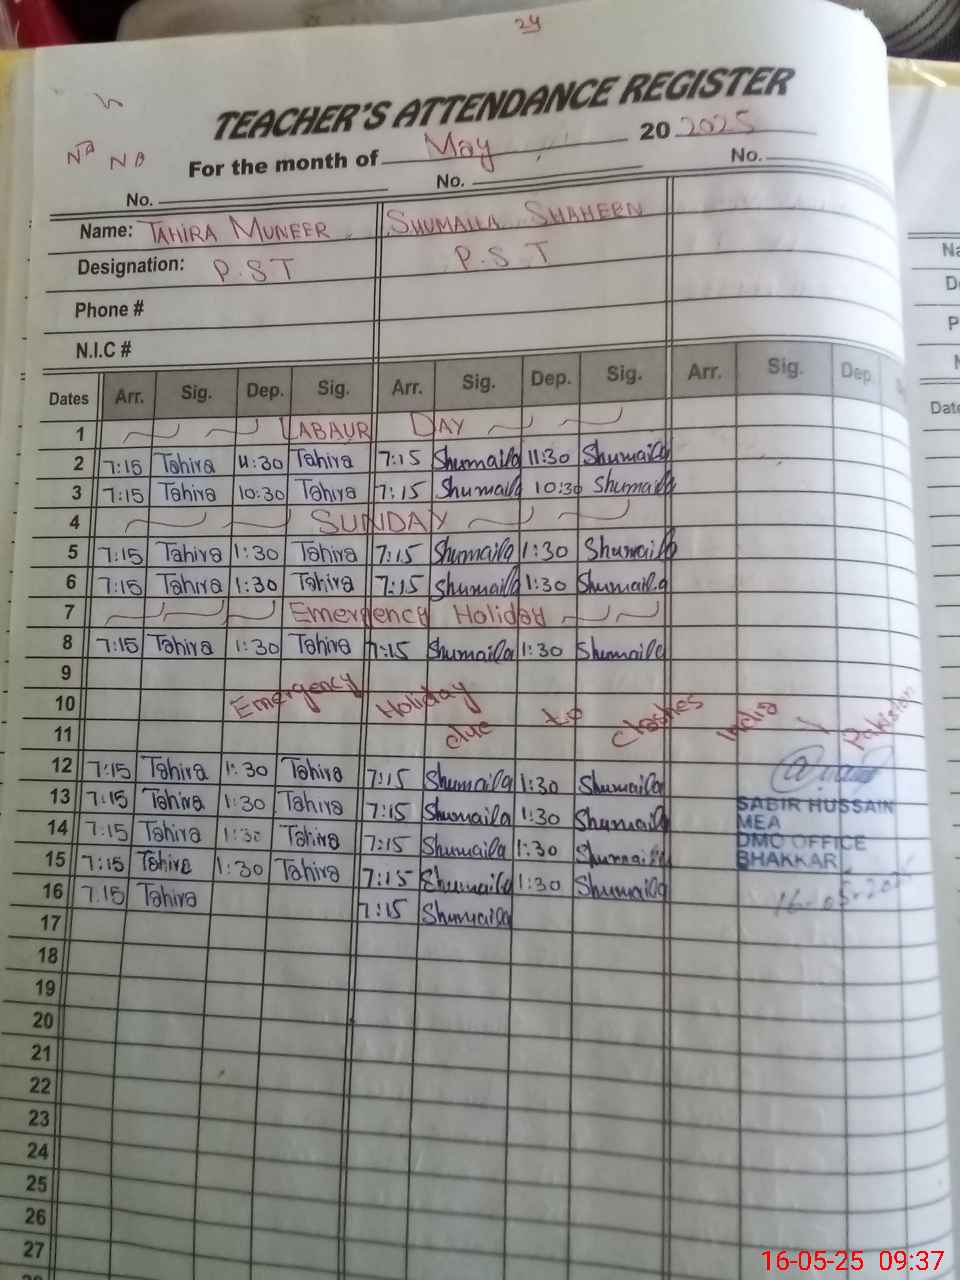 24
TEACHER'S ATTENDANCE REGISTER
For the month of May 20 2025
No. No. No.
Name: TAHIRA MUNEER SHUMAILA SHAHEEN
Designation: P.S.T P.S.T
Phone #
N.I.C #
Dates Arr. Sig. Dep. Sig. Arr. Sig. Dep. Sig. Arr. Sig. Dep.
1 LABAUR DAY
2 7:15 Tahira 11:30 Tahira 7:15 Shumaila 11:30 Shumaila
3 7:15 Tahira 10:30 Tahira 7:15 Shumaila 10:30 Shumaila
4 SUNDAY
5 7:15 Tahira 1:30 Tahira 7:15 Shumaila 1:30 Shumaila
6 7:15 Tahira 1:30 Tahira 7:15 Shumaila 1:30 Shumaila
7 Emergency Holiday
8 7:15 Tahira 1:30 Tahira 7:15 Shumaila 1:30 Shumaila
9
10 Emergency Holiday
11 due to clashes India / Pakistan
12 7:15 Tahira 1:30 Tahira 7:15 Shumaila 1:30 Shumaila
13 7:15 Tahira 1:30 Tahira 7:15 Shumaila 1:30 Shumaila
14 7:15 Tahira 1:30 Tahira 7:15 Shumaila 1:30 Shumaila
15 7:15 Tahira 1:30 Tahira 7:15 Shumaila 1:30 Shumaila
16 7:15 Tahira 7:15 Shumaila
SABIR HUSSAIN
MEA
DMO OFFICE
BHAKKAR
16-05-2025
17
18
19
20
21
22
23
24
25
26
27
16-05-25 09:37